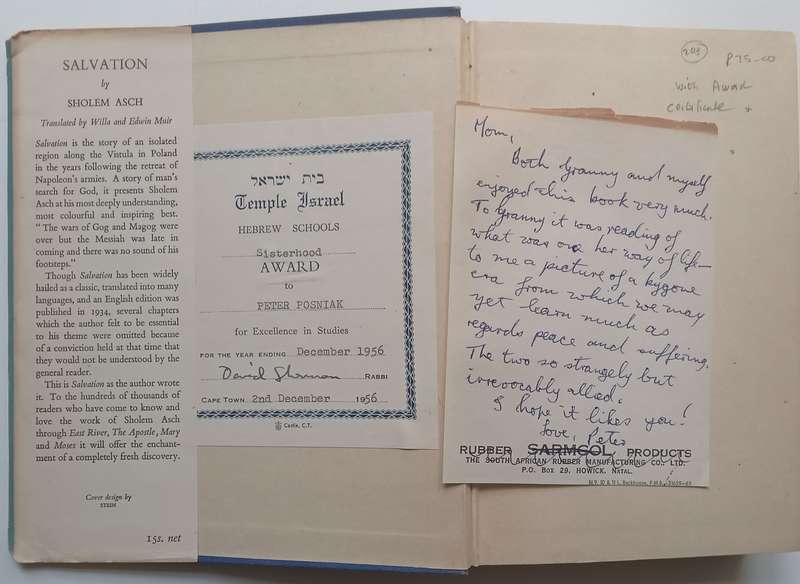 SALVATION
by
SHOLEM ASCH
Translated by Willa and Edwin Muir
Salvation is the story of an isolated
region along the Vistula in Poland
in the years following the retreat of
Napoleon's armies. A story of man's
search for God, it presents Sholem
Asch at his most deeply understanding,
most colourful and inspiring best.
"The wars of Gog and Magog were
over but the Messiah was late in
coming and there was no sound of his
footsteps."
Though Salvation has been widely
hailed as a classic, translated into many
languages, and an English edition was
published in 1934, several chapters
which the author felt to be essential
to his theme were omitted because
of a conviction held at that time that
they would not be understood by the
general reader.
This is Salvation as the author wrote
it. To the hundreds of thousands of
readers who have come to know and
love the work of Sholem Asch
through East River, The Apostle, Mary
and Moses it will offer the enchant-
ment of a completely fresh discovery.
Cover design by
STEIN
15s. net
בית ישראל
Temple Israel
HEBREW SCHOOLS
Sisterhood
AWARD
to
PETER POSNIAK
for Excellence in Studies
FOR THE YEAR ENDING December 1956
David Sherman RABBI
CAPE TOWN 2nd December 1956
Castle, C.T.
203 P75-00
with Award
certificate
Mom,
Both Granny and myself
enjoyed this book very much.
To Granny it was reading of
what was once her way of life—
to me a picture of a bygone
era from which we may
yet learn much as
regards peace and suffering.
The two so strangely but
irrevocably allied.
I hope it likes you!
Love, Peter
RUBBER SARMCOL PRODUCTS
THE SOUTH AFRICAN RUBBER MANUFACTURING CO., LTD.
P.O. BOX 29, HOWICK, NATAL.